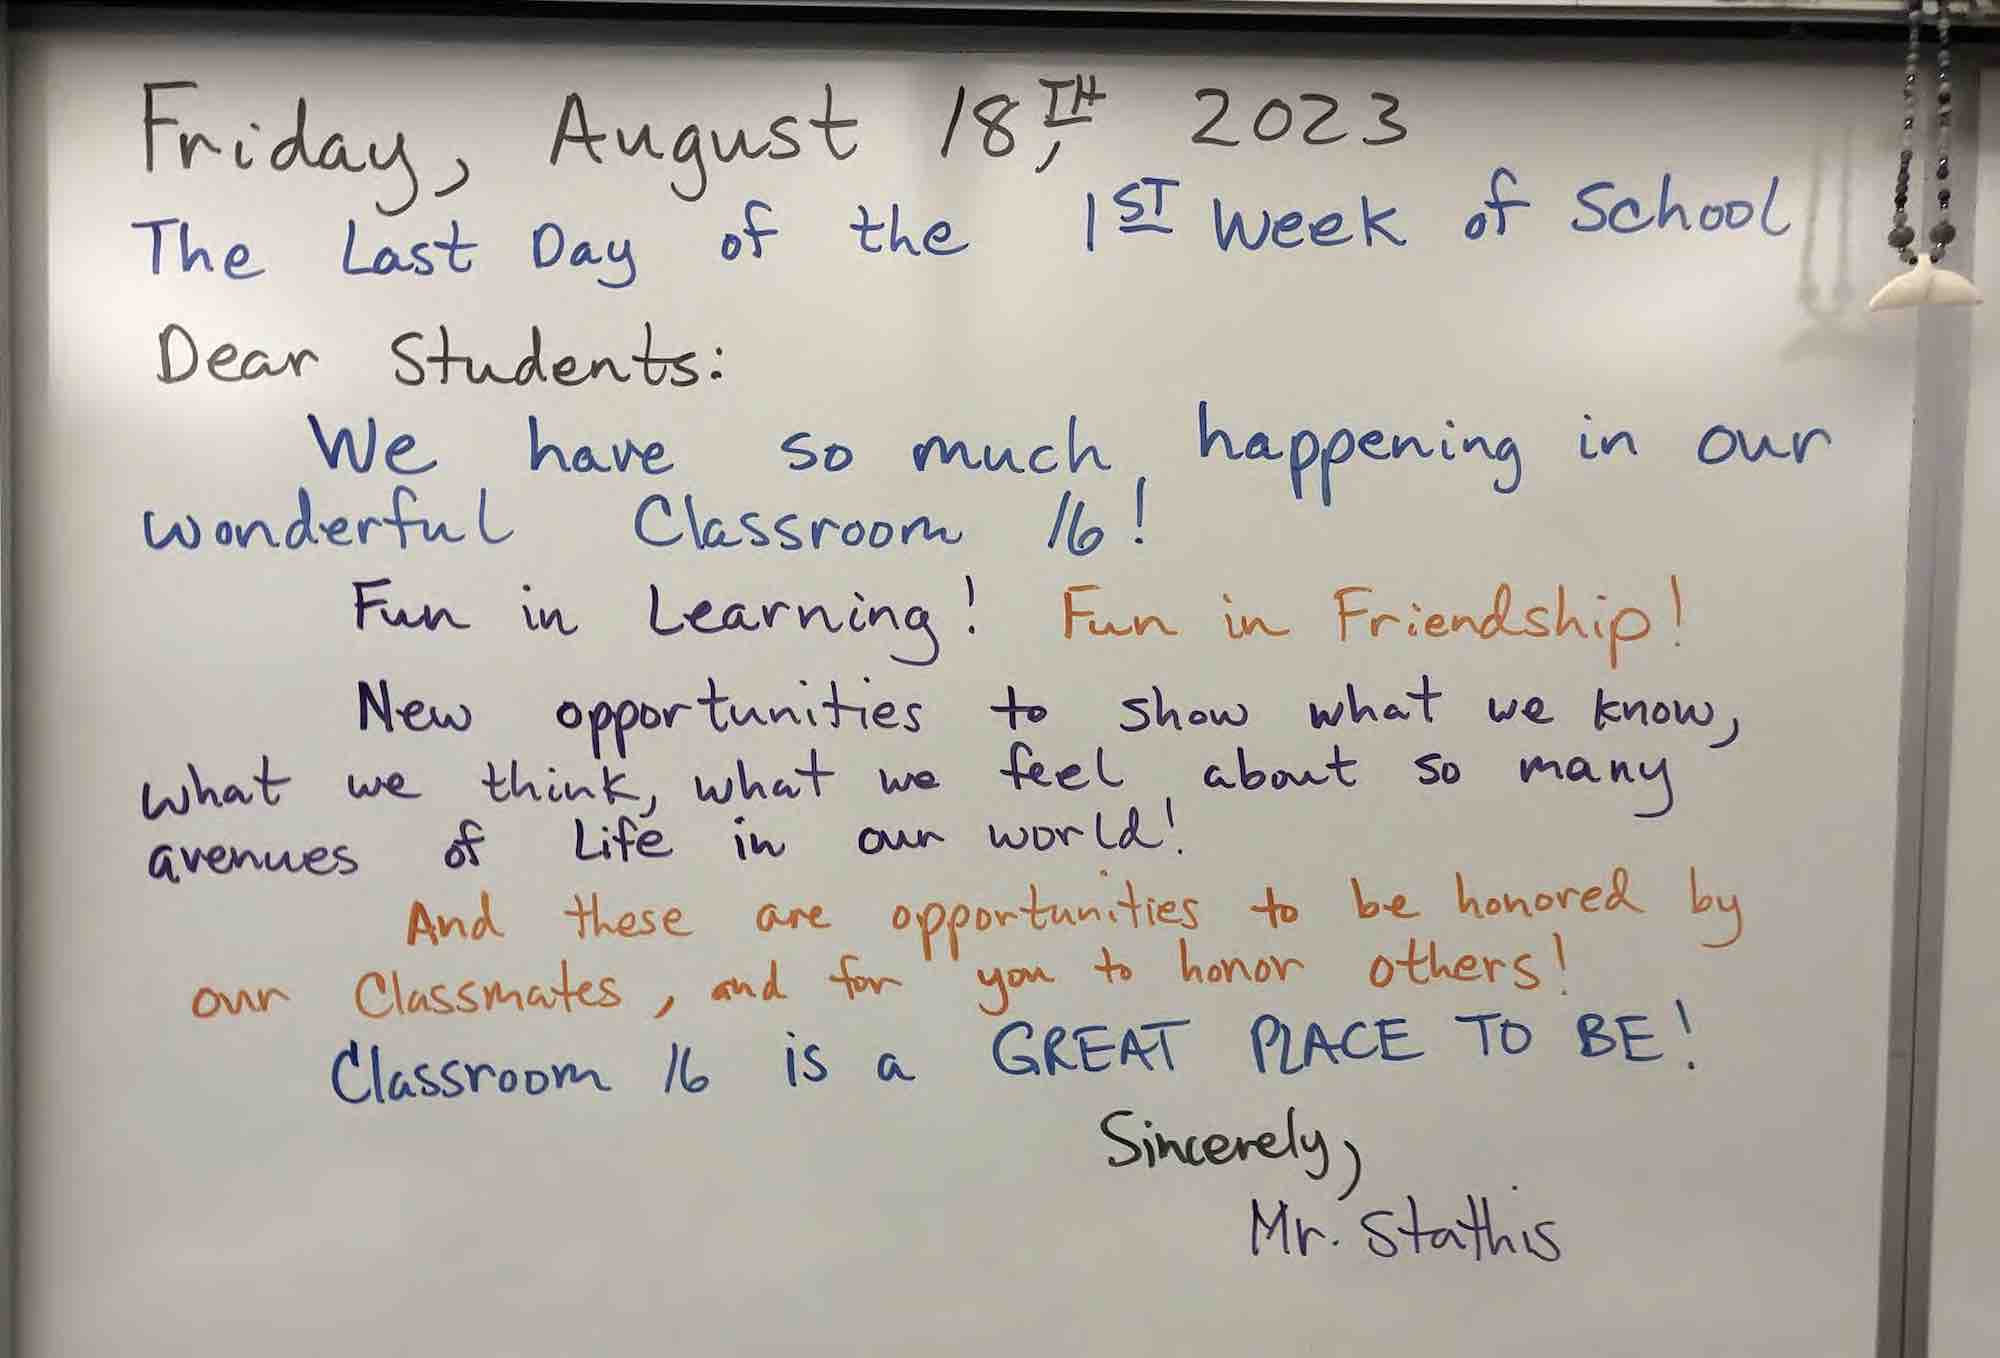 Friday, August 18TH, 2023
The Last Day of the 1ST Week of School
Dear Students:
We have so much happening in our
wonderful Classroom 16!
Fun in Learning! Fun in Friendship!
New opportunities to show what we know,
what we think, what we feel about so many
avenues of Life in our world!
And these are opportunities to be honored by
our Classmates, and for you to honor others!
Classroom 16 is a GREAT PLACE TO BE!
Sincerely,
Mr. Stathis